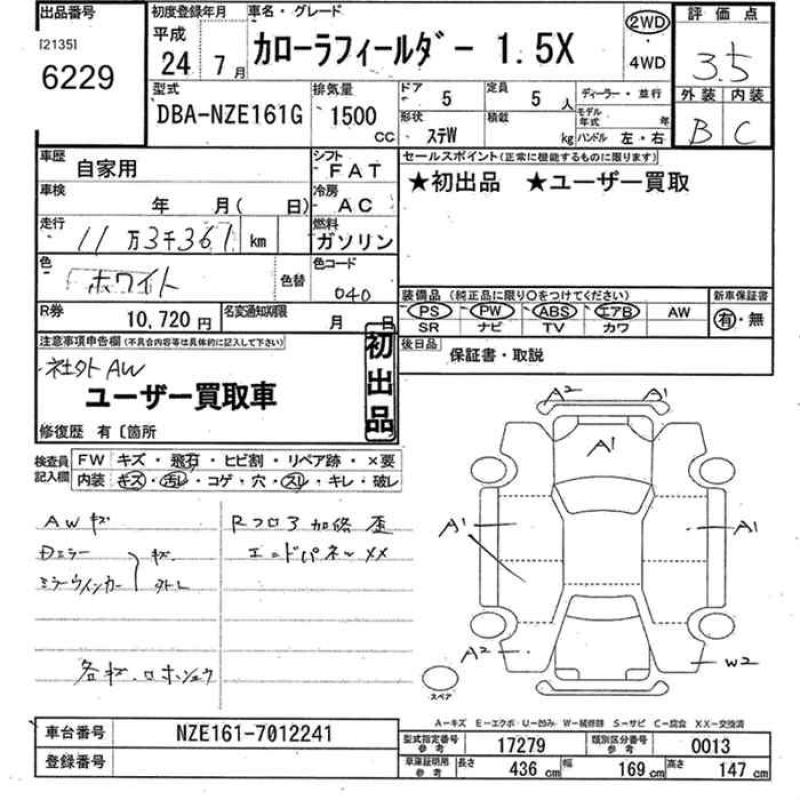 出品番号 初度登録年月 車名・グレード 評価点
[2135] 平成
6229 24年 7月 カローラフィールダー 1.5X 2WD 4WD 3.5
型式 排気量 ドア 定員 ディーラー・並行 外装 内装
DBA-NZE161G 1500cc 5 5人 モデル年式 年 B C
形状 ステW 積載 kg ハンドル 左・右
車歴 自家用 シフト FAT セールスポイント(正常に機能するものに限ります)
車検 年 月( 日) 冷房 AC ★初出品 ★ユーザー買取
走行 11万3千361km 燃料 ガソリン
色 ホワイト 色替 色コード 040
装備品(純正品に限り○をつけてください) 新車保証書
PS PW ABS エアB AW 有・無
SR ナビ TV カワ
R券 10,720円 名変通知期限 月 日
後日品 保証書・取説
注意事項申告欄(不具合内容等は具体的に記入して下さい)
社外AW
ユーザー買取車
初出品
修復歴 有〔箇所
検査員記入欄 FW キズ・飛石・ヒビ割・リペア跡・×要
内装 キズ・汚レ・コゲ・穴・スレ・キレ・破レ
AWキズ
Dミラー キズ
ミラーウィンカー
Rフロア 加修 歪
エンドパネル XX
A2 A1
A1
A1 A1
A2 W2
スペア
A－キズ E－エクボ U－凹み W－補修跡 S－サビ C－腐食 XX－交換済
車台番号 NZE161-7012241
登録番号
型式指定番号 参考 17279 類別区分番号 参考 0013
車庫証明用 参考 長さ 436cm 幅 169cm 高さ 147cm